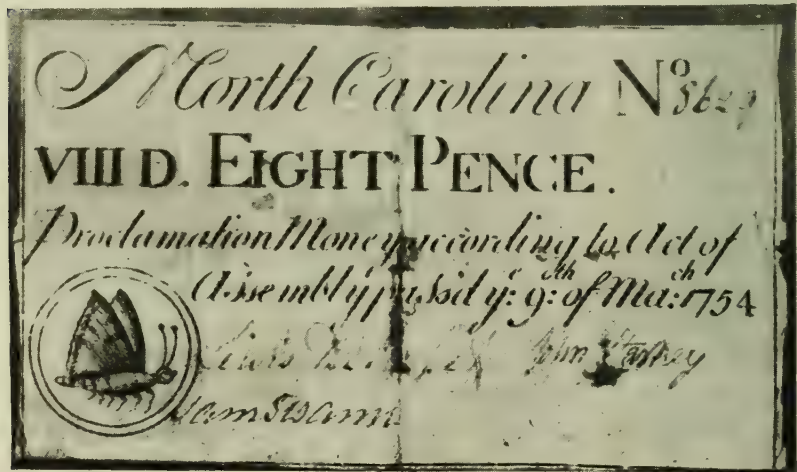 North Carolina No 5629
VIII D. EIGHT PENCE.
Proclamation Money according to Act of
Assembly passed ye: 9th: of March: 1754
John Starkey
Sam Swann